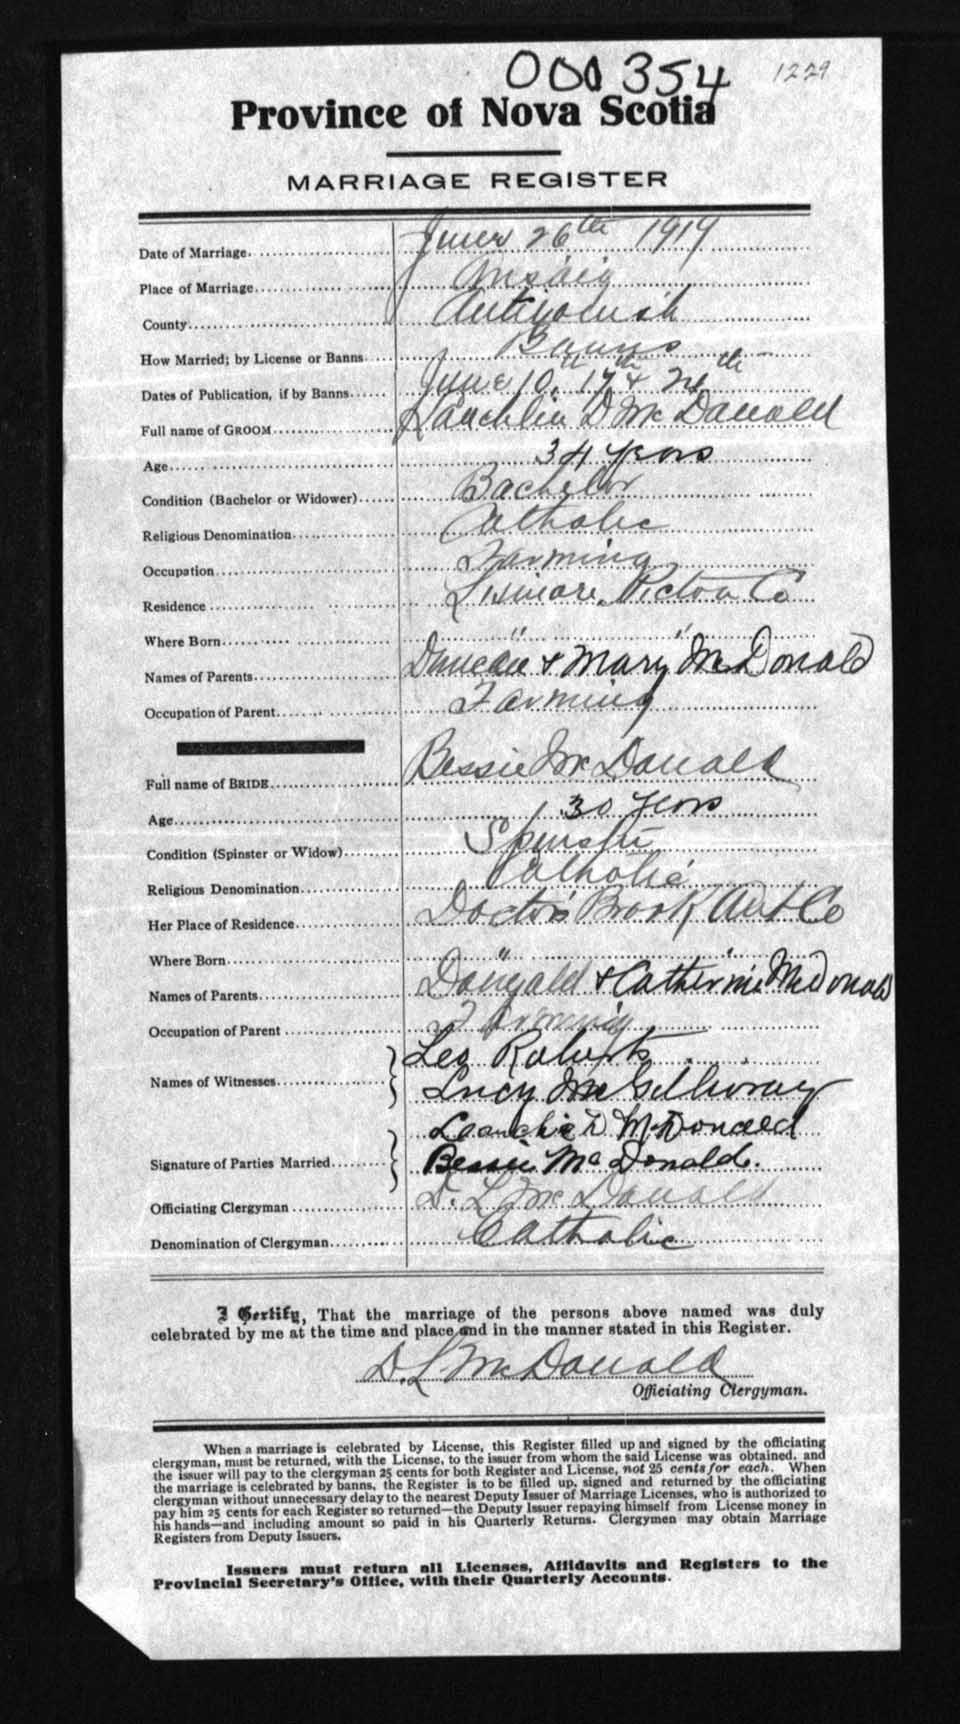 000354 1229
Province of Nova Scotia
MARRIAGE REGISTER
Date of Marriage June 26th 1919
Place of Marriage Arisaig
County Antigonish
How Married; by License or Banns Banns
Dates of Publication, if by Banns June 10, 17th & 24th
Full name of GROOM Lauchlin D McDonald
Age 34 years
Condition (Bachelor or Widower) Bachelor
Religious Denomination Catholic
Occupation Farming
Residence Lismore, Pictou Co
Where Born " "
Names of Parents Duncan & Mary McDonald
Occupation of Parent Farming
Full name of BRIDE Bessie McDonald
Age 30 years
Condition (Spinster or Widow) Spinster
Religious Denomination Catholic
Her Place of Residence Doctors Brook Ant Co
Where Born " "
Names of Parents Dougald & Catherine McDonald
Occupation of Parent Farming
Leo Roberts
Names of Witnesses Lucy McGillivray
Lauchie D McDonald
Signature of Parties Married Bessie McDonald.
Officiating Clergyman D. L. McDonald
Denomination of Clergyman Catholic
I Certify, That the marriage of the persons above named was duly
celebrated by me at the time and place and in the manner stated in this Register.
D. L. McDonald
Officiating Clergyman.
When a marriage is celebrated by License, this Register filled up and signed by the officiating
clergyman, must be returned, with the License, to the issuer from whom the said License was obtained, and
the issuer will pay to the clergyman 25 cents for both Register and License, not 25 cents for each. When
the marriage is celebrated by banns, the Register is to be filled up, signed and returned by the officiating
clergyman without unnecessary delay to the nearest Deputy Issuer of Marriage Licenses, who is authorized to
pay him 25 cents for each Register so returned—the Deputy Issuer repaying himself from License money in
his hands—and including amount so paid in his Quarterly Returns. Clergymen may obtain Marriage
Registers from Deputy Issuers.
Issuers must return all Licenses, Affidavits and Registers to the
Provincial Secretary's Office, with their Quarterly Accounts.